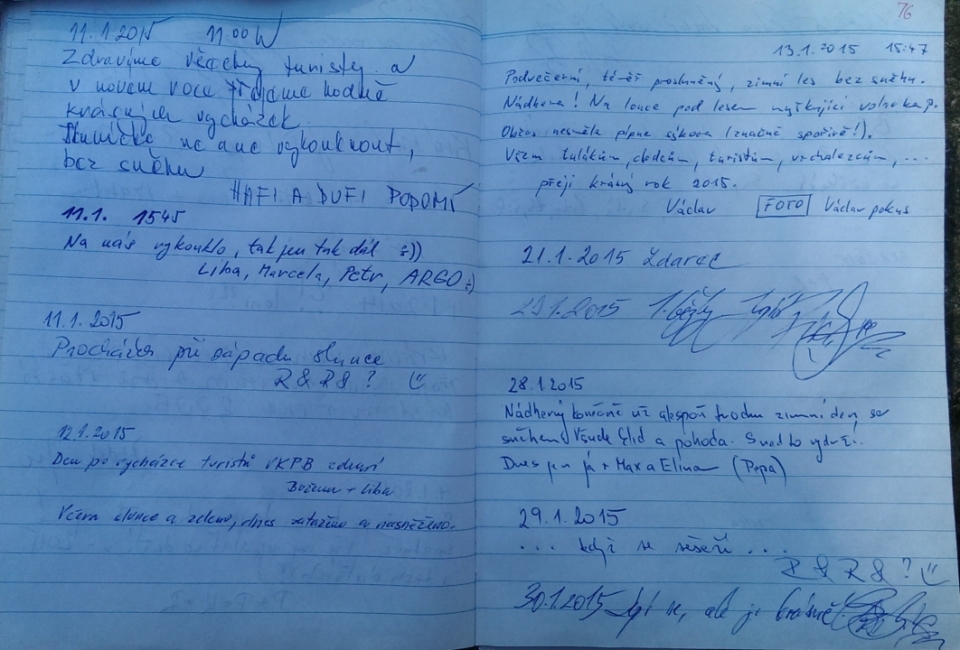 11.1.2015 11.00
Zdravíme všechny turisty a
v novém roce přejeme hodně
krásných vycházek.
Sluníčko, ne a ne vykouknout,
bez sněhu
HAFI A DUFI PODOMÍ
11.1. 1545
Na nás vykouklo, tak jen tak dál :-))
Liba, Marcela, Petr, ARGO :-)
11.1.2015
Procházka při západu slunce
R & R & ?
12.1.2015
Den po vycházce turistů VKPB zdraví
Božena + Liba
Včera slunce a zeleno, dnes zataženo a nasněženo.
76
13.1.2015 15:47
Podvečerní, téměř prosluněný, zimní les bez sněhu.
Nádhera! Na louce pod lesem
Obzor nesměle
Všem tulákům, turistům, ...
přeji krásný rok 2015.
Václav FOTO Václav pokus
21.1.2015 Zdarec
1.2015
28.1.2015
Nádherný konečně už alespoň trochu zimní den, se
sněhem. Všude klid a pohoda. Snad to vydrží.
Dnes jen já + Max a Elina (Pepa)
29.1.2015
... když se sešeří ...
R & R & ?
30.1.2015 se, ale je krásně!